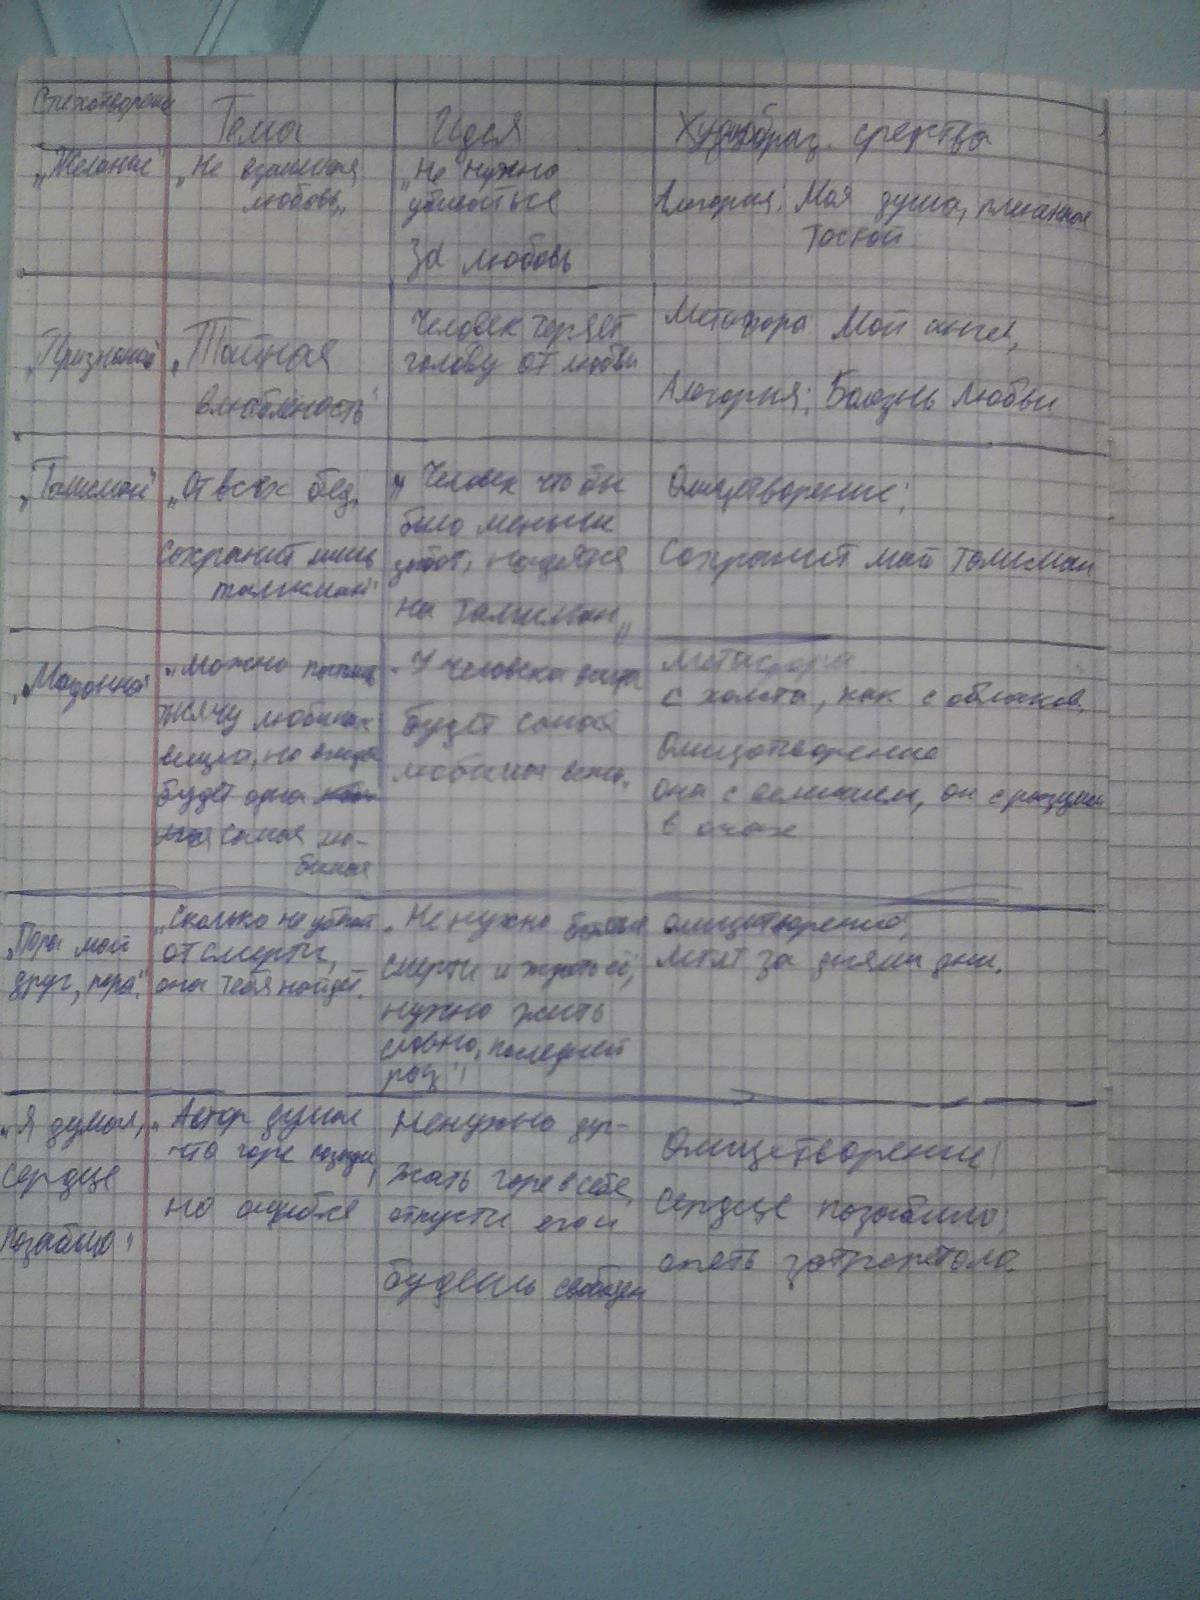 Стихотворение Тема Идея Худ. образ. средства
„Желание" „Не взаимная
любовь„
„Не нужно
убиваться
за любовь
Алегория: Моя душа,
тоской
„Признание" „Тайная
влюблёность"
Человек теряет
голову от любви
Метафора Мой ангел,
Алегория; Болезнь любви
„Талисман" „От всех бед,
сохранит лишь
талисман"
„ Человек что бы
было меньше
забот, надеятся
на талисман„
Олицетворение;
Сохранит мой талисман
„Мадонна" „Можно
тысячу любимых
вещей, но всегда
будет одна
самая лю-
бимая
У человека всегда
будет самая
любимая вещь.
Метафора
с холста, как с облаков,
Олицотворение
она с величием, он с разумом
в очах
„Пора мой
друг, пора".
„Сколько не убегай
от смерти,
она тебя найдёт.
„Не нужно бояться
смерти и ждать её,
нужно жить
словно, последний
раз"!
олицетворение;
летят за днями дни.
„Я думал,
сердце
позабыло"
„Автор думал
что горе позади,
но ошибся
Ненужно дер-
жать горе в себе,
отпусти его и
будешь свободен
Олицетворение;
сердце позабыло;
опять затрепетало.